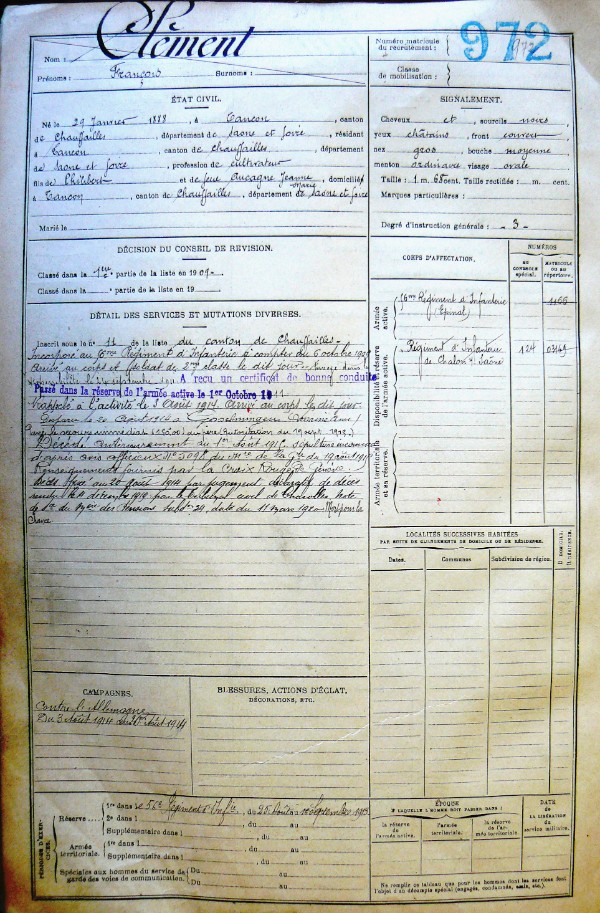 Nom : Clément
Prénoms : François Surnoms :
Numéro matricule du recrutement : 972
Classe de mobilisation :
ÉTAT CIVIL.
Né le 29 Janvier 1888, à Tancon, canton
de Chauffailles, département de Saône et Loire, résidant
à Tancon, canton de Chauffailles, département
de Saône et Loire, profession de cultivateur
fils de Philibert et de feue Aucagne Jeanne Marie, domiciliés
à Tancon, canton de Chauffailles, département de Saône et Loire
Marié le
SIGNALEMENT.
Cheveux et sourcils noirs,
yeux châtains, front couvert
nez gros, bouche moyenne
menton ordinaire, visage ovale
Taille : 1 m. 65 cent. Taille rectifiée : m. cent.
Marques particulières :
Degré d'instruction générale : 3
DÉCISION DU CONSEIL DE REVISION.
Classé dans la 1ère partie de la liste en 1909
Classé dans la partie de la liste en 19
DÉTAIL DES SERVICES ET MUTATIONS DIVERSES.
Inscrit sous le n° 11 de la liste du canton de Chauffailles
Incorporé au Régiment d'Infanterie à compter du 6 octobre 1909
Arrivé au corps et soldat de 2me classe le dit jour.
A reçu un certificat de bonne conduite
Passé dans la réserve de l'armée active le 1er Octobre 1911
Rappelé à l'activité le 3 Août 1914. Arrivé au corps le dit jour
Décédé antérieurement au 1er Août 1915,
d'après avis officieux du 19 août 1915
Renseignements fournis par la Croix Rouge de Genève.
Décès fixé au 20 août 1914 par jugement déclaratif de décès
rendu le décembre 1919 par le tribunal civil de Charolles.
de Pensions du 11 mars 1920 Mort pour la
France
CORPS D'AFFECTATION.
NUMÉROS
AU CONTRÔLE SPÉCIAL.
MATRICULE OU AU RÉPERTOIRE.
Armée active.
Régiment d'Infanterie
(Épinal)
1166
Disponibilité et réserve de l'armée active.
Régiment d'Infanterie
de Chalon s/ Saône
124 03149
Armée territoriale et sa réserve.
LOCALITÉS SUCCESSIVES HABITÉES
PAR SUITE DE CHANGEMENTS DE DOMICILE OU DE RÉSIDENCE.
Dates. Communes Subdivision de région. D. domicile. R. résidence.
CAMPAGNES.
Contre l'Allemagne
Du 3 Août 1914 au 20 Août 1914
BLESSURES, ACTIONS D'ÉCLAT,
DÉCORATIONS, ETC.
PÉRIODES D'EXERCICES.
Réserve
1re dans le 56e Régiment d'Infie, du 25 Août au 10 Septembre 1913
2e dans l , du au
Supplémentaire dans l , du au
Armée territoriale.
1re dans l , du au
Supplémentaire dans l , du au
Spéciales aux hommes du service de garde des voies de communication.
Du au
Du au
ÉPOQUE
À LAQUELLE L'HOMME DOIT PASSER DANS :
la réserve de l'armée active.
l'armée territoriale.
la réserve de l'armée territoriale
DATE DE LA LIBÉRATION du service militaire.
Ne remplir ce tableau que pour les hommes dont les services font l'objet d'un décompte spécial (engagés, condamnés, omis, etc.).